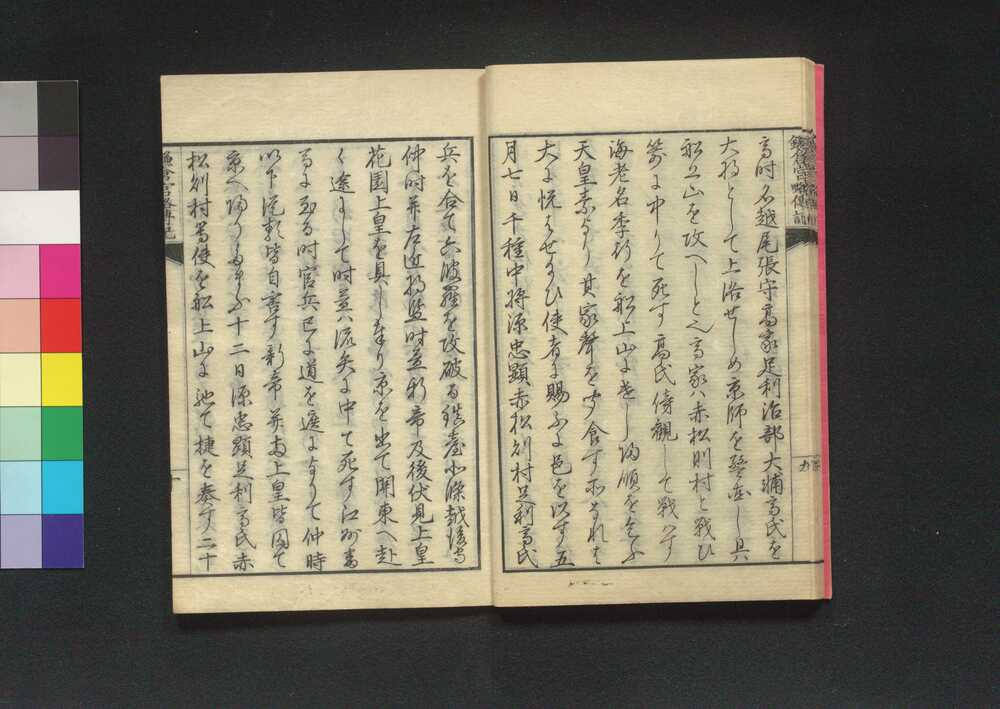 高時名越尾張守高家足利治部大輔高氏を
大将として上洛せしめ京師を警固し且
船上山を攻へしと也高家ハ赤松則村と戦ひ
箭に中りて死す高氏傍観して戦ハす
海老名季行を船上山に遣し帰順を乞ふ
天皇素より其家聲を聞食す所なれは
大に悦はせ給ひ使者に賜ふに邑を以す五
月七日千種中将源忠顕赤松則村足利高氏
兵を合て六波羅を攻破る鎮臺北條越後守
仲時并左近将監時益新帝及後伏見上皇
花園上皇を具し奉り京を出て関東へ赴
く途にして時益ハ流矢に中て死す江州番
馬に至る時官兵已に道を遮によりて仲時
以下従類皆自害す新帝并両上皇皆囚て
京へ帰り給ふ十二日源忠顕足利高氏赤
松則村等使を船上山に馳て捷を奏す二十
鎌倉宮略傳記
鎌倉宮略傳記
九